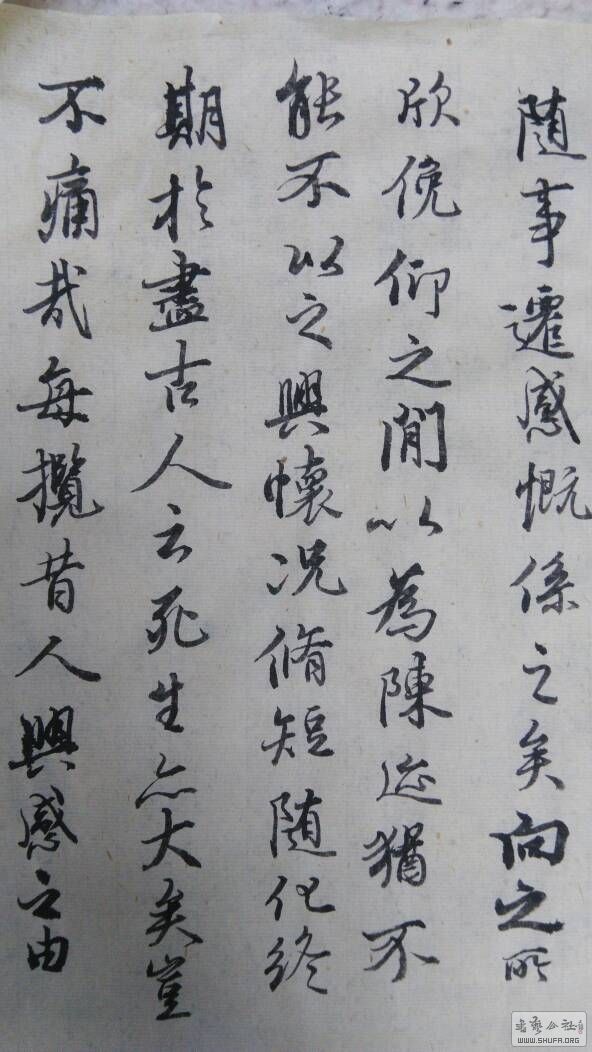 随事遷感慨係之矣向之所
欣俛仰之閒以為陳迹猶不
能不以之興懷況脩短随化終
期於盡古人云死生亦大矣豈
不痛哉每攬昔人興感之由
書藝公社
WWW.SHUFA.ORG